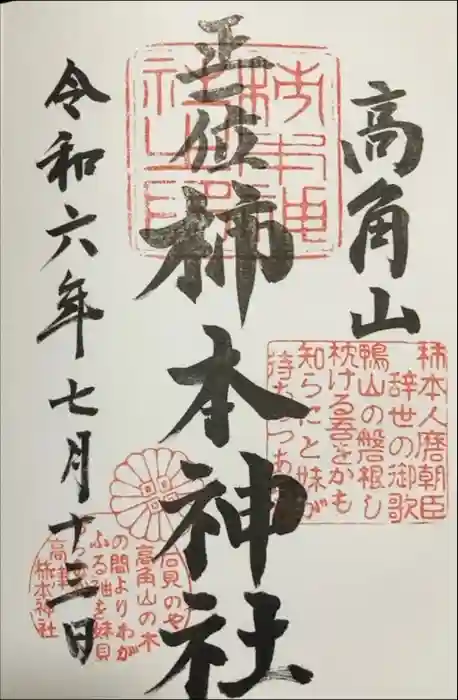 高角山
正一位
柿本神社
令和六年七月十三日
柿本神社之印
柿本人麿朝臣
辞世の御歌
鴨山の磐根し
枕ける吾をかも
知らにと妹が
待ちつつあ
石見のや
高角山の木
の間よりわが
ふる袖を妹見
つ
高津
柿本神社